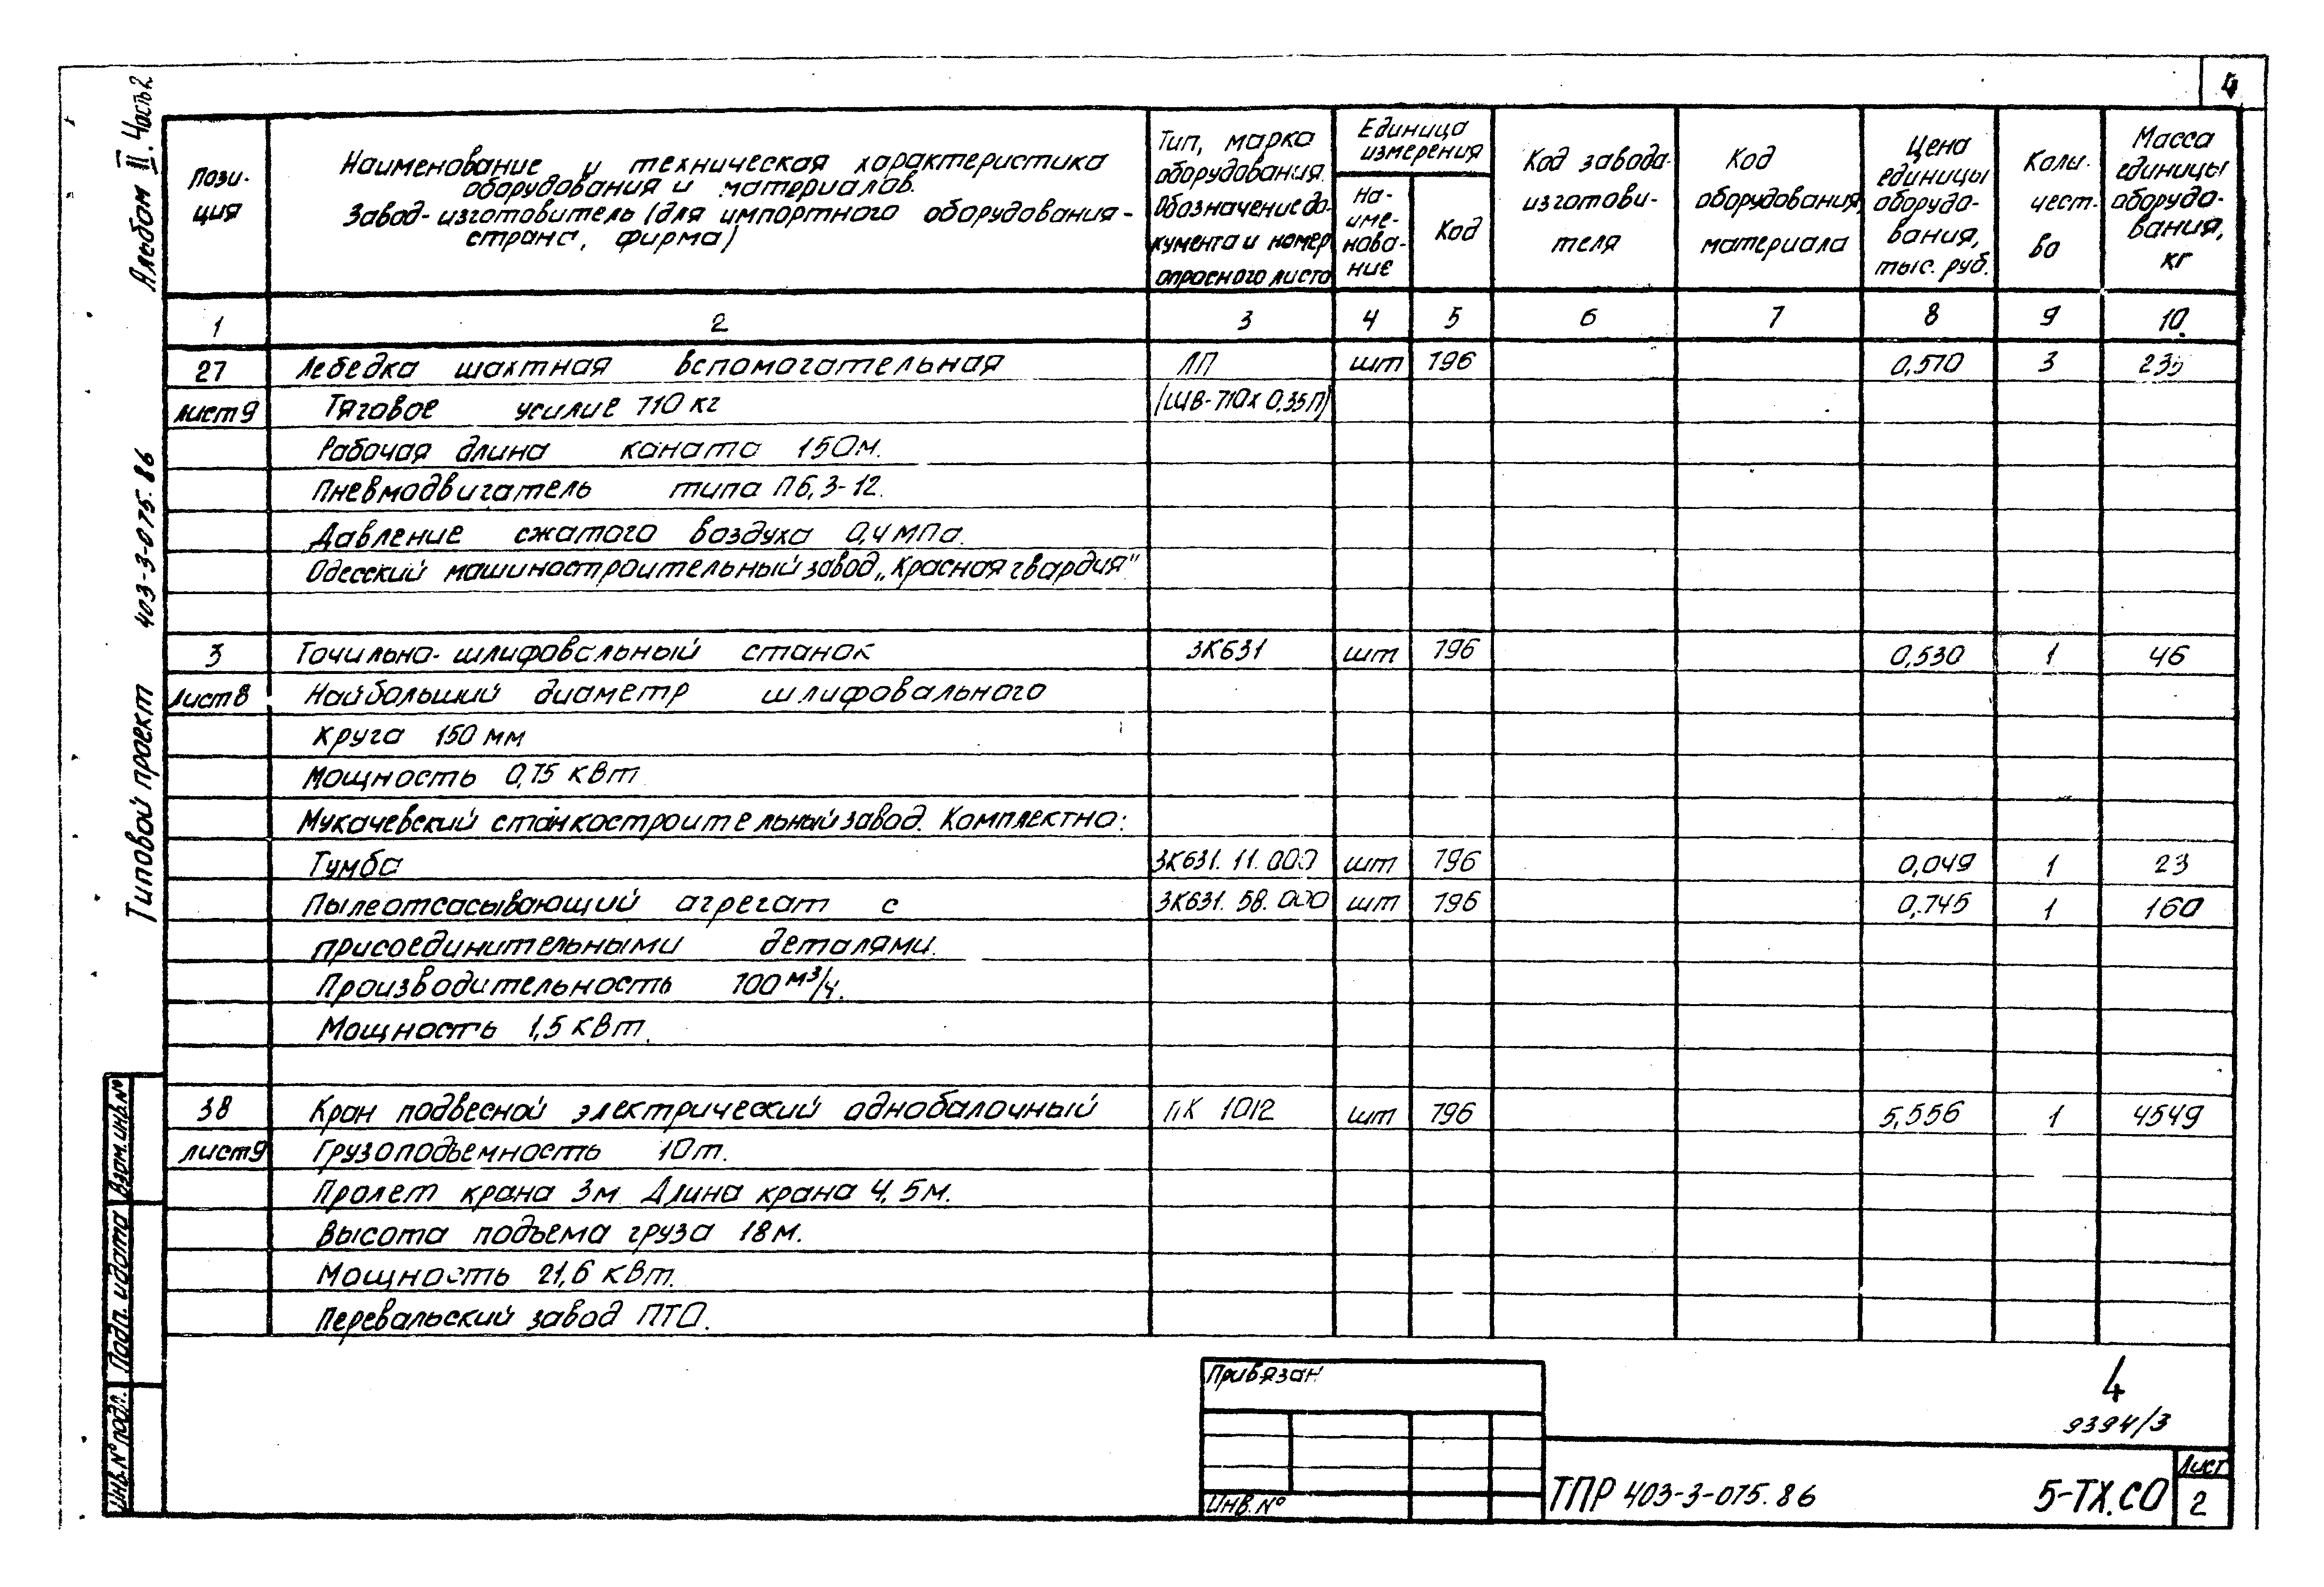 4
Альбом III. Часть 2
Типовой проект 403-3-075.86
Пози-
ция
Наименование и техническая характеристика
оборудования и материалов.
Завод-изготовитель (для импортного оборудования-
страна, фирма)
Тип, марка
оборудования.
Обозначение до-
кумента и номер
опросного листа
Единица
измерения
На-
име-
нова-
ние
Код
Код завода-
изготови-
теля
Код
оборудования,
материала
Цена
единицы
оборудо-
вания,
тыс. руб.
Коли-
чест-
во
Масса
единицы
оборудо-
вания,
кг
1 2 3 4 5 6 7 8 9 10
27 Лебедка шахтная вспомогательная ЛП шт 796 0,570 3 235
лист 9 Тяговое усилие 710 кг (ШВ-710х0,35П)
Рабочая длина каната 150м.
Пневмодвигатель типа П6,3-12.
Давление сжатого воздуха 0,4 МПа.
Одесский машиностроительный завод „Красная гвардия"
3 Точильно-шлифовальный станок 3К631 шт 796 0,530 1 46
Лист 8 Наибольший диаметр шлифовального
круга 150 мм
Мощность 0,75 кВт
Мукачевский станкостроительный завод. Комплектно:
Тумба 3К631.11.000 шт 796 0,049 1 23
Пылеотсасывающий агрегат с 3К631.58.000 шт 796 0,745 1 160
присоединительными деталями.
Производительность 700 м³/ч.
Мощность 1,5 кВт.
38 Кран подвесной электрический однобалочный ПК 1012 шт 796 5,556 1 4549
лист 9 Грузоподъемность 10т.
Пролет крана 3м Длина крана 4,5м.
Высота подъема груза 18м.
Мощность 21,6 кВт.
Перевальский завод ПТО.
Взам. инв. №
Подп. и дата
Инв. № подл.
Привязан
Инв. №
4
9394/3
ТПР 403-3-075.86 5-ТХ.СО
Лист
2